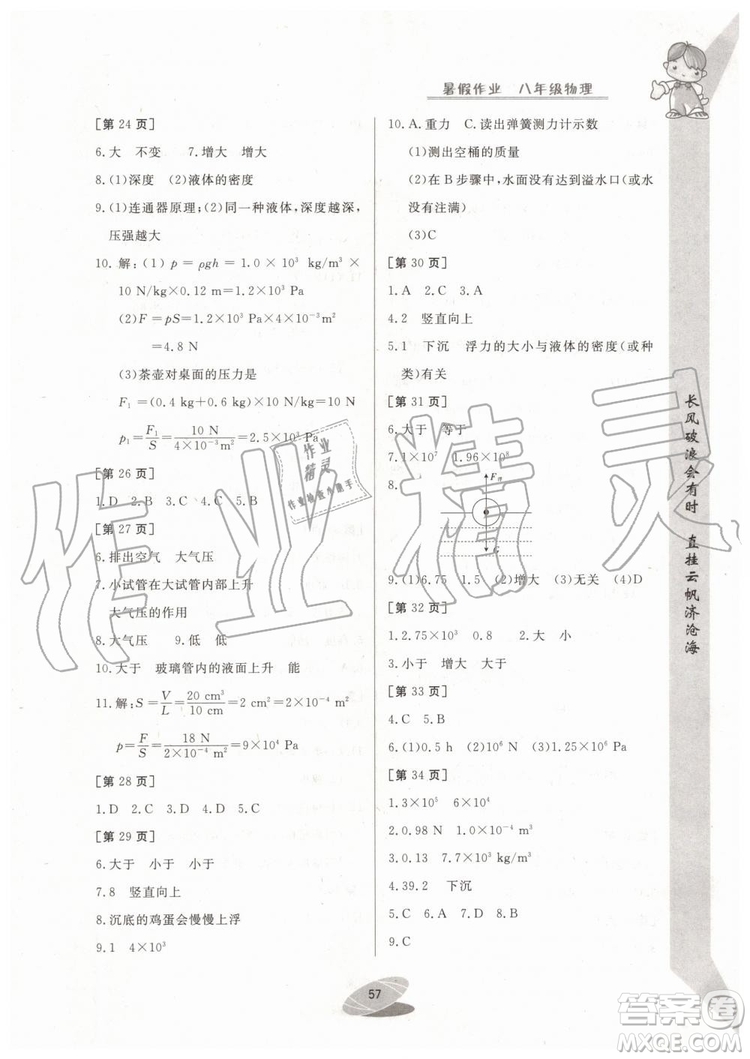 暑假作业 八年级物理
[第 24 页]
6.大 不变 7.增大 增大
8.(1)深度 (2)液体的密度
9.(1)连通器原理;(2)同一种液体,深度越深,
压强越大
10.解:(1) p = ρgh = 1.0 × 10³ kg/m³ ×
10 N/kg×0.12 m=1.2×10³ Pa
(2)F=pS=1.2×10³ Pa×4×10⁻³ m²
=4.8 N
(3)茶壶对桌面的压力
F₁=(0.4 kg+0.6 kg)×10 N/kg=10 N
p₁=F₁/S=10 N/4×10⁻³ m²=2.5×10³ Pa
[第 26 页]
1.D 2.D 3.C 4.C 5.C
[第 27 页]
6.排出空气 大气压
7.小试管在大试管内部上升
大气压的作用
8.大气压 9.低 低
10.大于 玻璃管内的液面上升 能
11.解:S=V/L=20 cm³/10 cm=2 cm²=2×10⁻⁴ m²
p=F/S=18 N/2×10⁻⁴ m²=9×10⁴ Pa
[第 28 页]
1.D 2.C 3.A 4.B 5.D
[第 29 页]
6.大于 小于 小于
7.8 竖直向上
8.沉底的鸡蛋会慢慢上浮
9.1 4×10³
10.A.重力 C.读出弹簧测力计示数
(1)测出空桶的质量
(2)在 B 步骤中,水面没有达到溢水口(或水
没有注满)
(3)C
[第 30 页]
1.A 2.C 3.A
4.2 竖直向上
5.1 下沉 浮力的大小与液体的密度(或种
类)有关
[第 31 页]
6.大于 等于
7.1×10⁷ 1.96×10⁸
8.
F浮
G
9.(1)6.75 1.5 (2)增大 (3)无关 (4)D
[第 32 页]
1.2.75×10³ 0.8 2.大 小
3.小于 增大 大于
[第 33 页]
4.C 5.B
6.(1)0.5 h (2)10⁸ N (3)1.25×10⁶ Pa
[第 34 页]
1.3×10⁵ 6×10⁷
2.0.98 1.0×10⁻⁴ m³
3.0.13 7.7×10³
4.39.2 下沉
5.C 6.A 7.D 8.B
9.C
长风破浪会有时 直挂云帆济沧海
57
作业精灵
作业精灵
答案圈
MXQE.COM